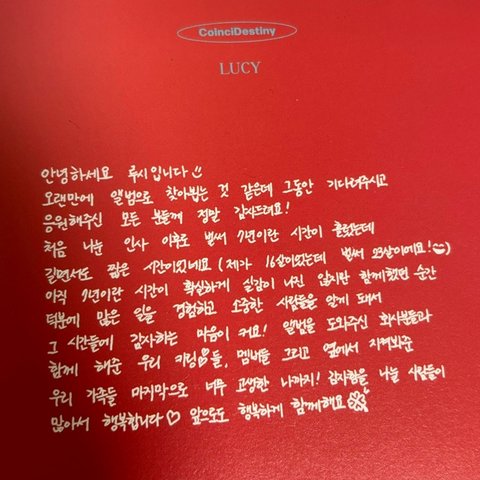 CoinciDestiny
LUCY
안녕하세요 루시입니다
오랜만에 앨범으로 찾아뵙는 것 같은데 그동안 기다려주시고
응원해주신 모든 분들께 정말 감사드려요!
처음 나눈 인사 이후로 벌써 7년이란 시간이 흘렀는데
길면서도 짧은 시간이었네요 (제가 16살이었는데 벌써 23살이에요!)
아직 7년이란 시간이 확실하게 실감이 나진 않지만 함께했던 순간
덕분에 많은 일을 경험하고 소중한 사람들을 알게 돼서
그 시간들에 감사하는 마음이 커요! 앨범을 도와주신 회사분들과
함께 해준 우리 키링들, 멤버들 그리고 옆에서 지켜봐준
우리 가족들 마지막으로 너무 고생한 나까지! 감사함을 나눌 사람들이
많아서 행복합니다♡ 앞으로도 행복하게 함께해요